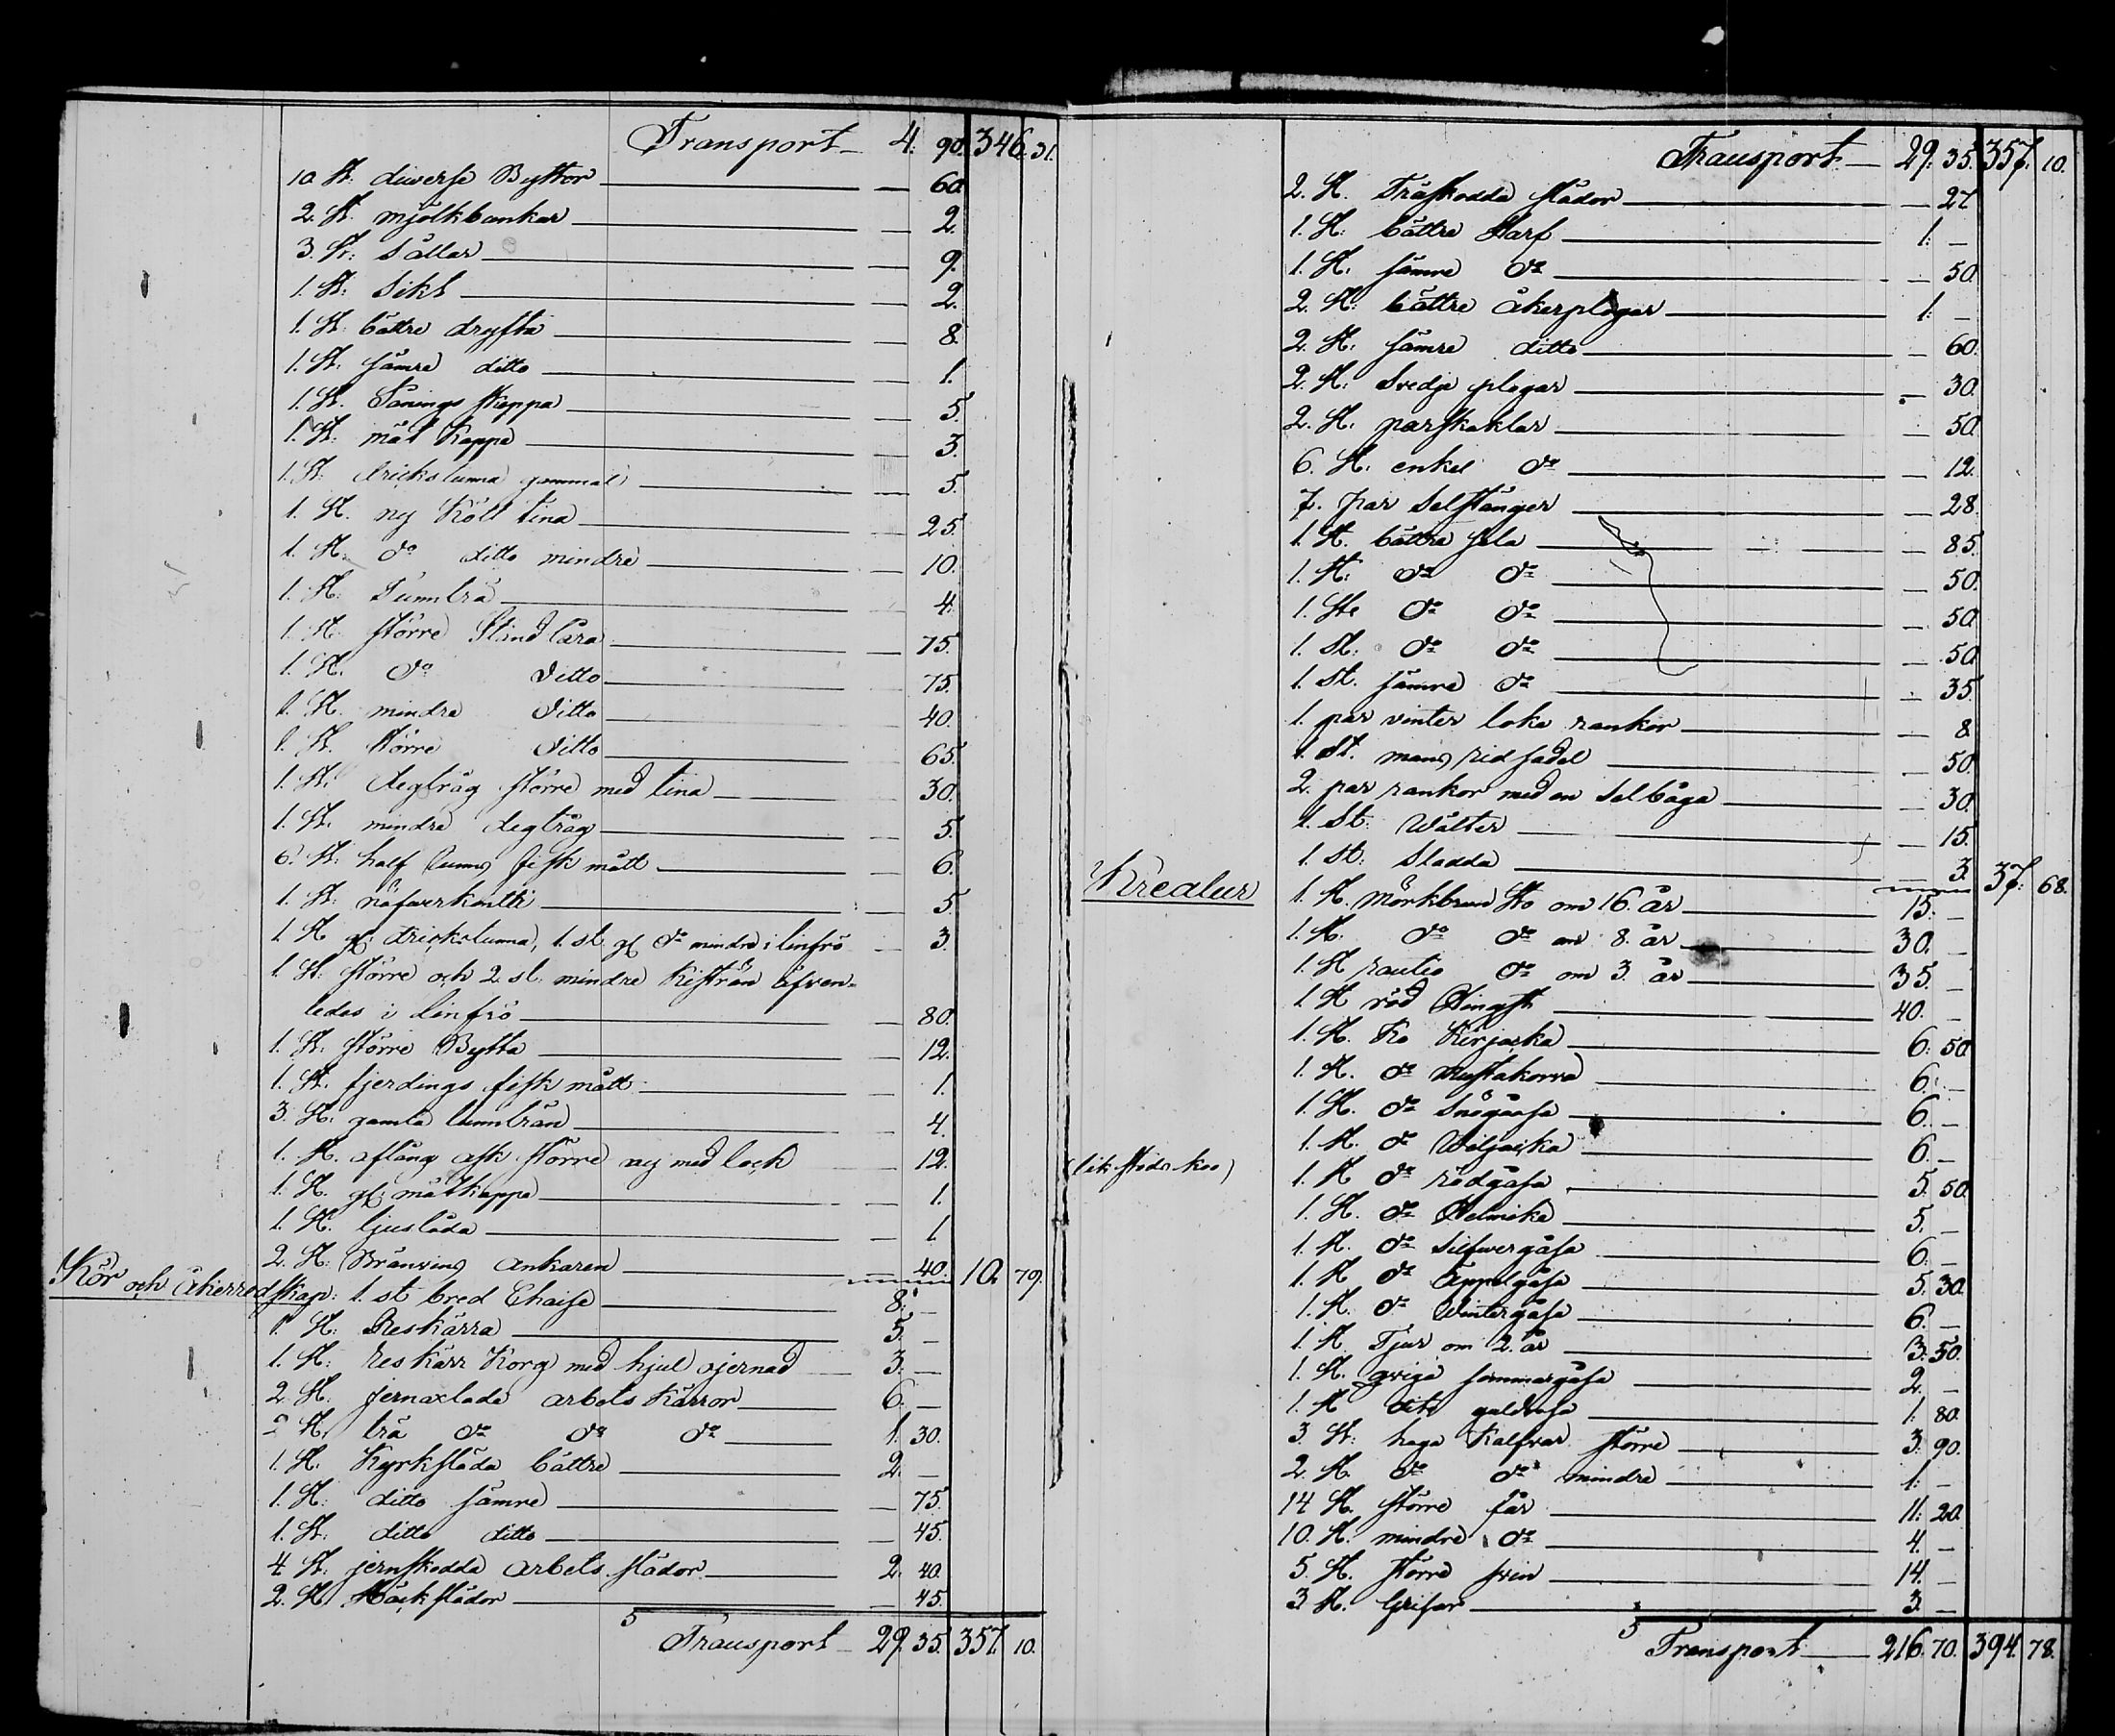 Transport 4. 90. 346. 31.
10 St. diverse Byttor 60.
2. St. mjölkbunkar 2.
3. St. Sållar 9.
1. St. Sikt 2.
1. St. bättre dryfta 8.
1. St. sämre ditto 1.
1. St. Sånings skäppa 5.
1. St. mät Kappe 3.
1. St. drickstunna gammal 5.
1. St. ny Kött tina 25.
1. St. do ditto mindre 10.
1. St. Tunnträ 4.
1. St. större Stånd låra 75.
1. St. do ditto 75.
1. St. mindre ditto 40.
1. St. större ditto 65.
1. St. degtråg större med tina 30.
1. St. mindre degtråg 5.
6. St. half tunns fisk mått 6.
1. St. näfverkontti 5.
1. St gl. drickstunna, 1. st. gl do mindre i linfrö 3.
1. St. större och 2. st. mindre Kisträn äfven-
ledes i linfrö 80.
1. St. större Bytta 12.
1. St. fjerdings fisk mått 1.
3. St. gamla tunnträn 4.
1. St. aflång ask större ny med lock 12.
1. St. gl. mätkappe 1.
1. St. ljuslåda 1.
2. St. Bränvins ankaren 40. 10. 79.
Kör och åkerredskap: 1. st bred Chaise 8. –
1. St. Reskärra 5. –
1. St. reskärr Korg med hjul ojernad 3. –
2. St. jernaxlade arbets Kärror 6. –
2 St. trä do do do 1. 30.
1. St. Kyrksläda bättre 2. –
1. St. ditto sämre 75.
1. St. ditto ditto 45.
4. St. jernskodda arbets slädor 2. 40.
2. St. Häck slädor 45.
Transport 29. 35. 357. 10.
Transport 29. 35. 357. 10.
2. St. Träskodda slädor 27
1. St. bättre Harf 1. –
1. St. sämre do 50
2. St. bättre åkerplogar 1. –
2. St. sämre ditto 60.
2. St. Svedje plogar 30.
2. St. parskaklar 50.
6. St. enkel do 12.
7. par Selstänger 28.
1. St. bättre sela 85.
1. St. do do 50.
1. St. do do 50
1. St. do do 50
1. St. sämre do 35
1. par vinter loka rankor 8
1. St. mans ridsadel 50.
2. par rankor med en Selbåga 30.
1. St. Wälter 15.
1. St. Sladda 3. 37. 68.
Kreatur
1. St. Mörkbrun Sto om 16. år 15. –
1. St. do do om 8. år 30. –
1. St rautio do om 3. år 35. –
1. St röd Hingst 40. –
1. St. Ko Kirjacka 6. 50
1. St. do Mustakorva 6. –
1. St. do Snögåsa 6. –
1. St. do Weljacka 6. –
(likstods koo)
1. St do rödgåsa 5. 50.
1. St. do Helmika 5. –
1. St. do Silfwergåsa 6. –
1. St do Äppelgåsa 5. 30.
1. St. do Wintergåsa 6. –
1. St Tjur om 2. år 3. 50.
1. St. qviga sommargåsa 2. –
1. St dito guldrosa 1. 80.
3. St. haga Kalfvar större 3. 90.
2. St. do do mindre 1. –
14 St. större får 11. 20.
10. St. mindre do 4. –
5. St. större svin 14. –
3 St. Grisar 3. –
Transport 216. 70. 394. 78.